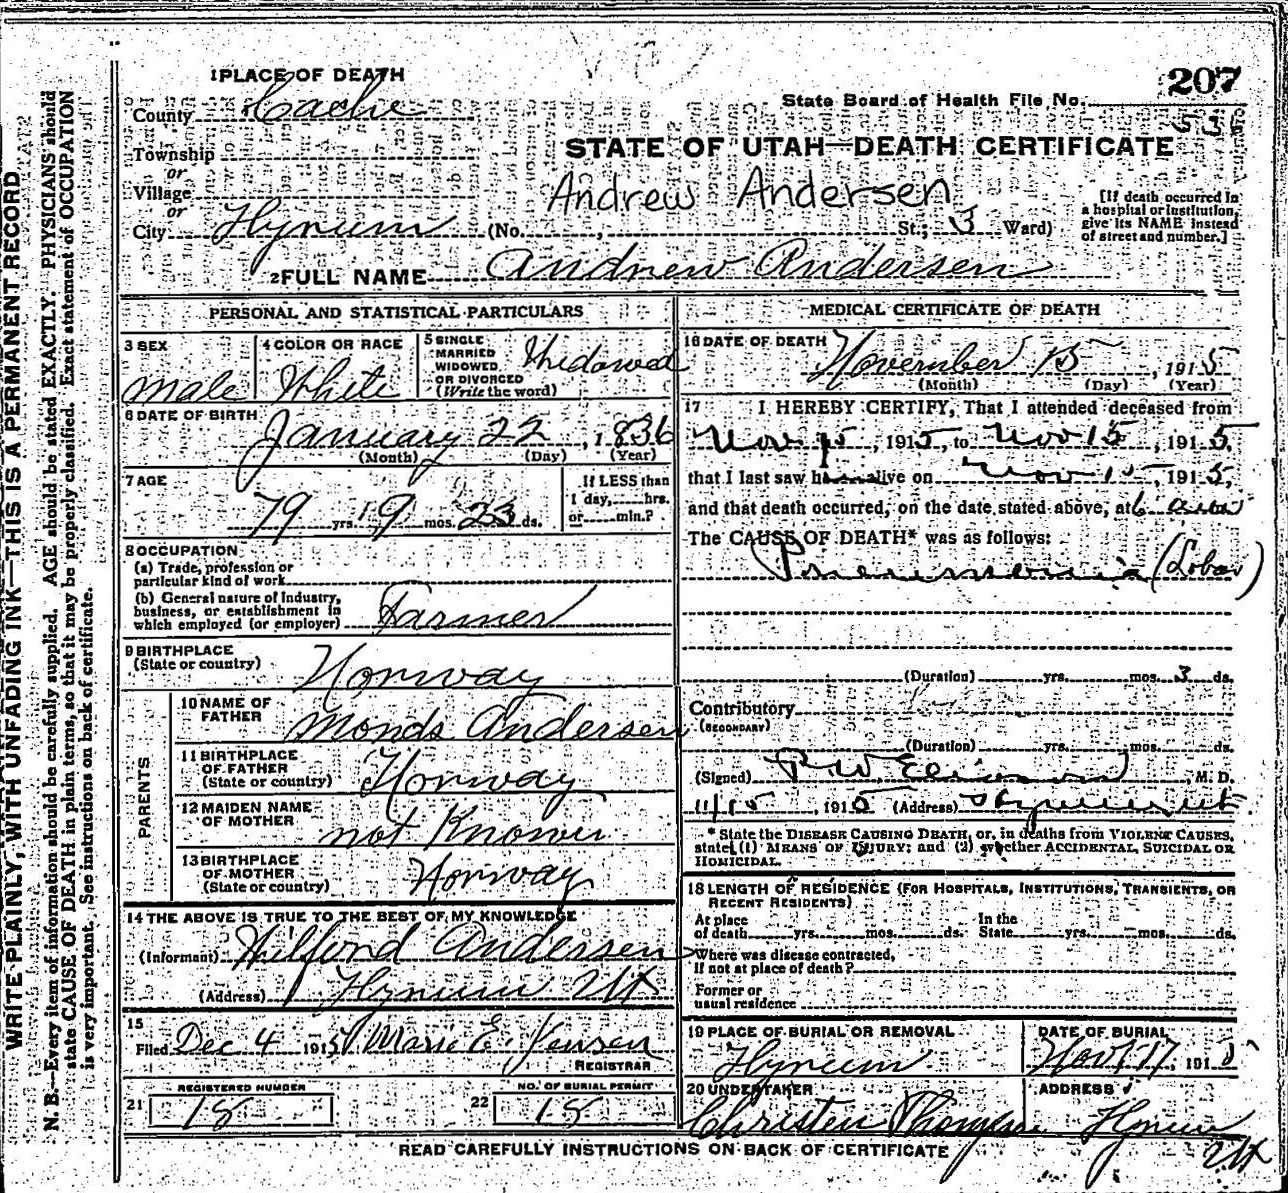 207
1 PLACE OF DEATH
State Board of Health File No.
County Cache
535
Township
STATE OF UTAH—DEATH CERTIFICATE
or
Village
Andrew Andersen
or
[If death occurred in a hospital or institution, give its NAME instead of street and number.]
City Hyrum (No. , St.; 3 Ward)
2 FULL NAME Andrew Andersen
PERSONAL AND STATISTICAL PARTICULARS
3 SEX
Male
4 COLOR OR RACE
White
5 SINGLE
MARRIED
WIDOWED
OR DIVORCED
(Write the word)
Widowed
6 DATE OF BIRTH
January 22, 1836
(Month) (Day) (Year)
7 AGE
79 yrs. 9 mos. 23 ds.
If LESS than
1 day, hrs.
or min.?
8 OCCUPATION
(a) Trade, profession or
particular kind of work
(b) General nature of Industry,
business, or establishment in
which employed (or employer) Farmer
9 BIRTHPLACE
(State or country) Norway
PARENTS
10 NAME OF
FATHER Monds Andersen
11 BIRTHPLACE
OF FATHER
(State or country) Norway
12 MAIDEN NAME
OF MOTHER not Known
13 BIRTHPLACE
OF MOTHER
(State or country) Norway
14 THE ABOVE IS TRUE TO THE BEST OF MY KNOWLEDGE
(Informant) Wilford Andersen
(Address) Hyrum Ut
15
Filed Dec 4 1915 Marie E. Jensen
REGISTRAR
REGISTERED NUMBER
21 18
NO. OF BURIAL PERMIT
22 18
MEDICAL CERTIFICATE OF DEATH
16 DATE OF DEATH
November 15, 1915
(Month) (Day) (Year)
17 I HEREBY CERTIFY, That I attended deceased from
Nov 15, 1915, to Nov 15, 1915,
that I last saw him alive on Nov 15, 1915,
and that death occurred, on the date stated above, at 6 a.m.
The CAUSE OF DEATH* was as follows:
Pneumonia (Lobar)
(Duration) yrs. mos. 3 ds.
Contributory
(SECONDARY)
(Duration) yrs. mos. ds.
(Signed) , M. D.
11/15, 1915 (Address) Hyrum Ut
* State the DISEASE CAUSING DEATH, or, in deaths from VIOLENT CAUSES,
state (1) MEANS OF INJURY; and (2) whether ACCIDENTAL, SUICIDAL OR
HOMICIDAL.
18 LENGTH OF RESIDENCE (FOR HOSPITALS, INSTITUTIONS, TRANSIENTS, OR
RECENT RESIDENTS)
At place
of death yrs. mos. ds.
In the
State yrs. mos. ds.
Where was disease contracted,
if not at place of death?
Former or
usual residence
19 PLACE OF BURIAL OR REMOVAL
Hyrum
DATE OF BURIAL
Nov 17, 191
20 UNDERTAKER
Christen
ADDRESS
Hyrum
Ut
READ CAREFULLY INSTRUCTIONS ON BACK OF CERTIFICATE
WRITE PLAINLY, WITH UNFADING INK—THIS IS A PERMANENT RECORD
N. B.—Every item of information should be carefully supplied. AGE should be stated EXACTLY. PHYSICIANS should
state CAUSE OF DEATH in plain terms, so that it may be properly classified. Exact statement of OCCUPATION
is very important. See instructions on back of certificate.